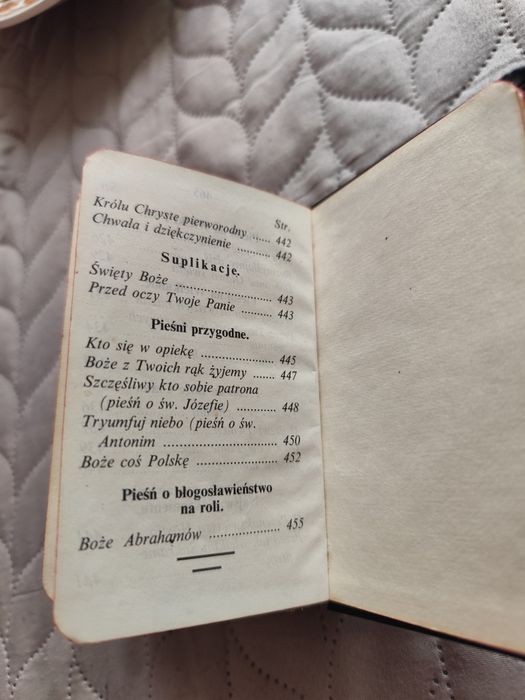 Str.
Królu Chryste pierworodny ...... 442
Chwała i dziękczynienie .......... 442
Suplikacje.
Święty Boże ............................ 443
Przed oczy Twoje Panie ......... 443
Pieśni przygodne.
Kto się w opiekę ..................... 445
Boże z Twoich rąk żyjemy ...... 447
Szczęśliwy kto sobie patrona
(pieśń o św. Józefie) ............ 448
Tryumfuj niebo (pieśń o św.
Antonim ................................ 450
Boże coś Polskę ...................... 452
Pieśń o błogosławieństwo
na roli.
Boże Abrahamów ................... 455